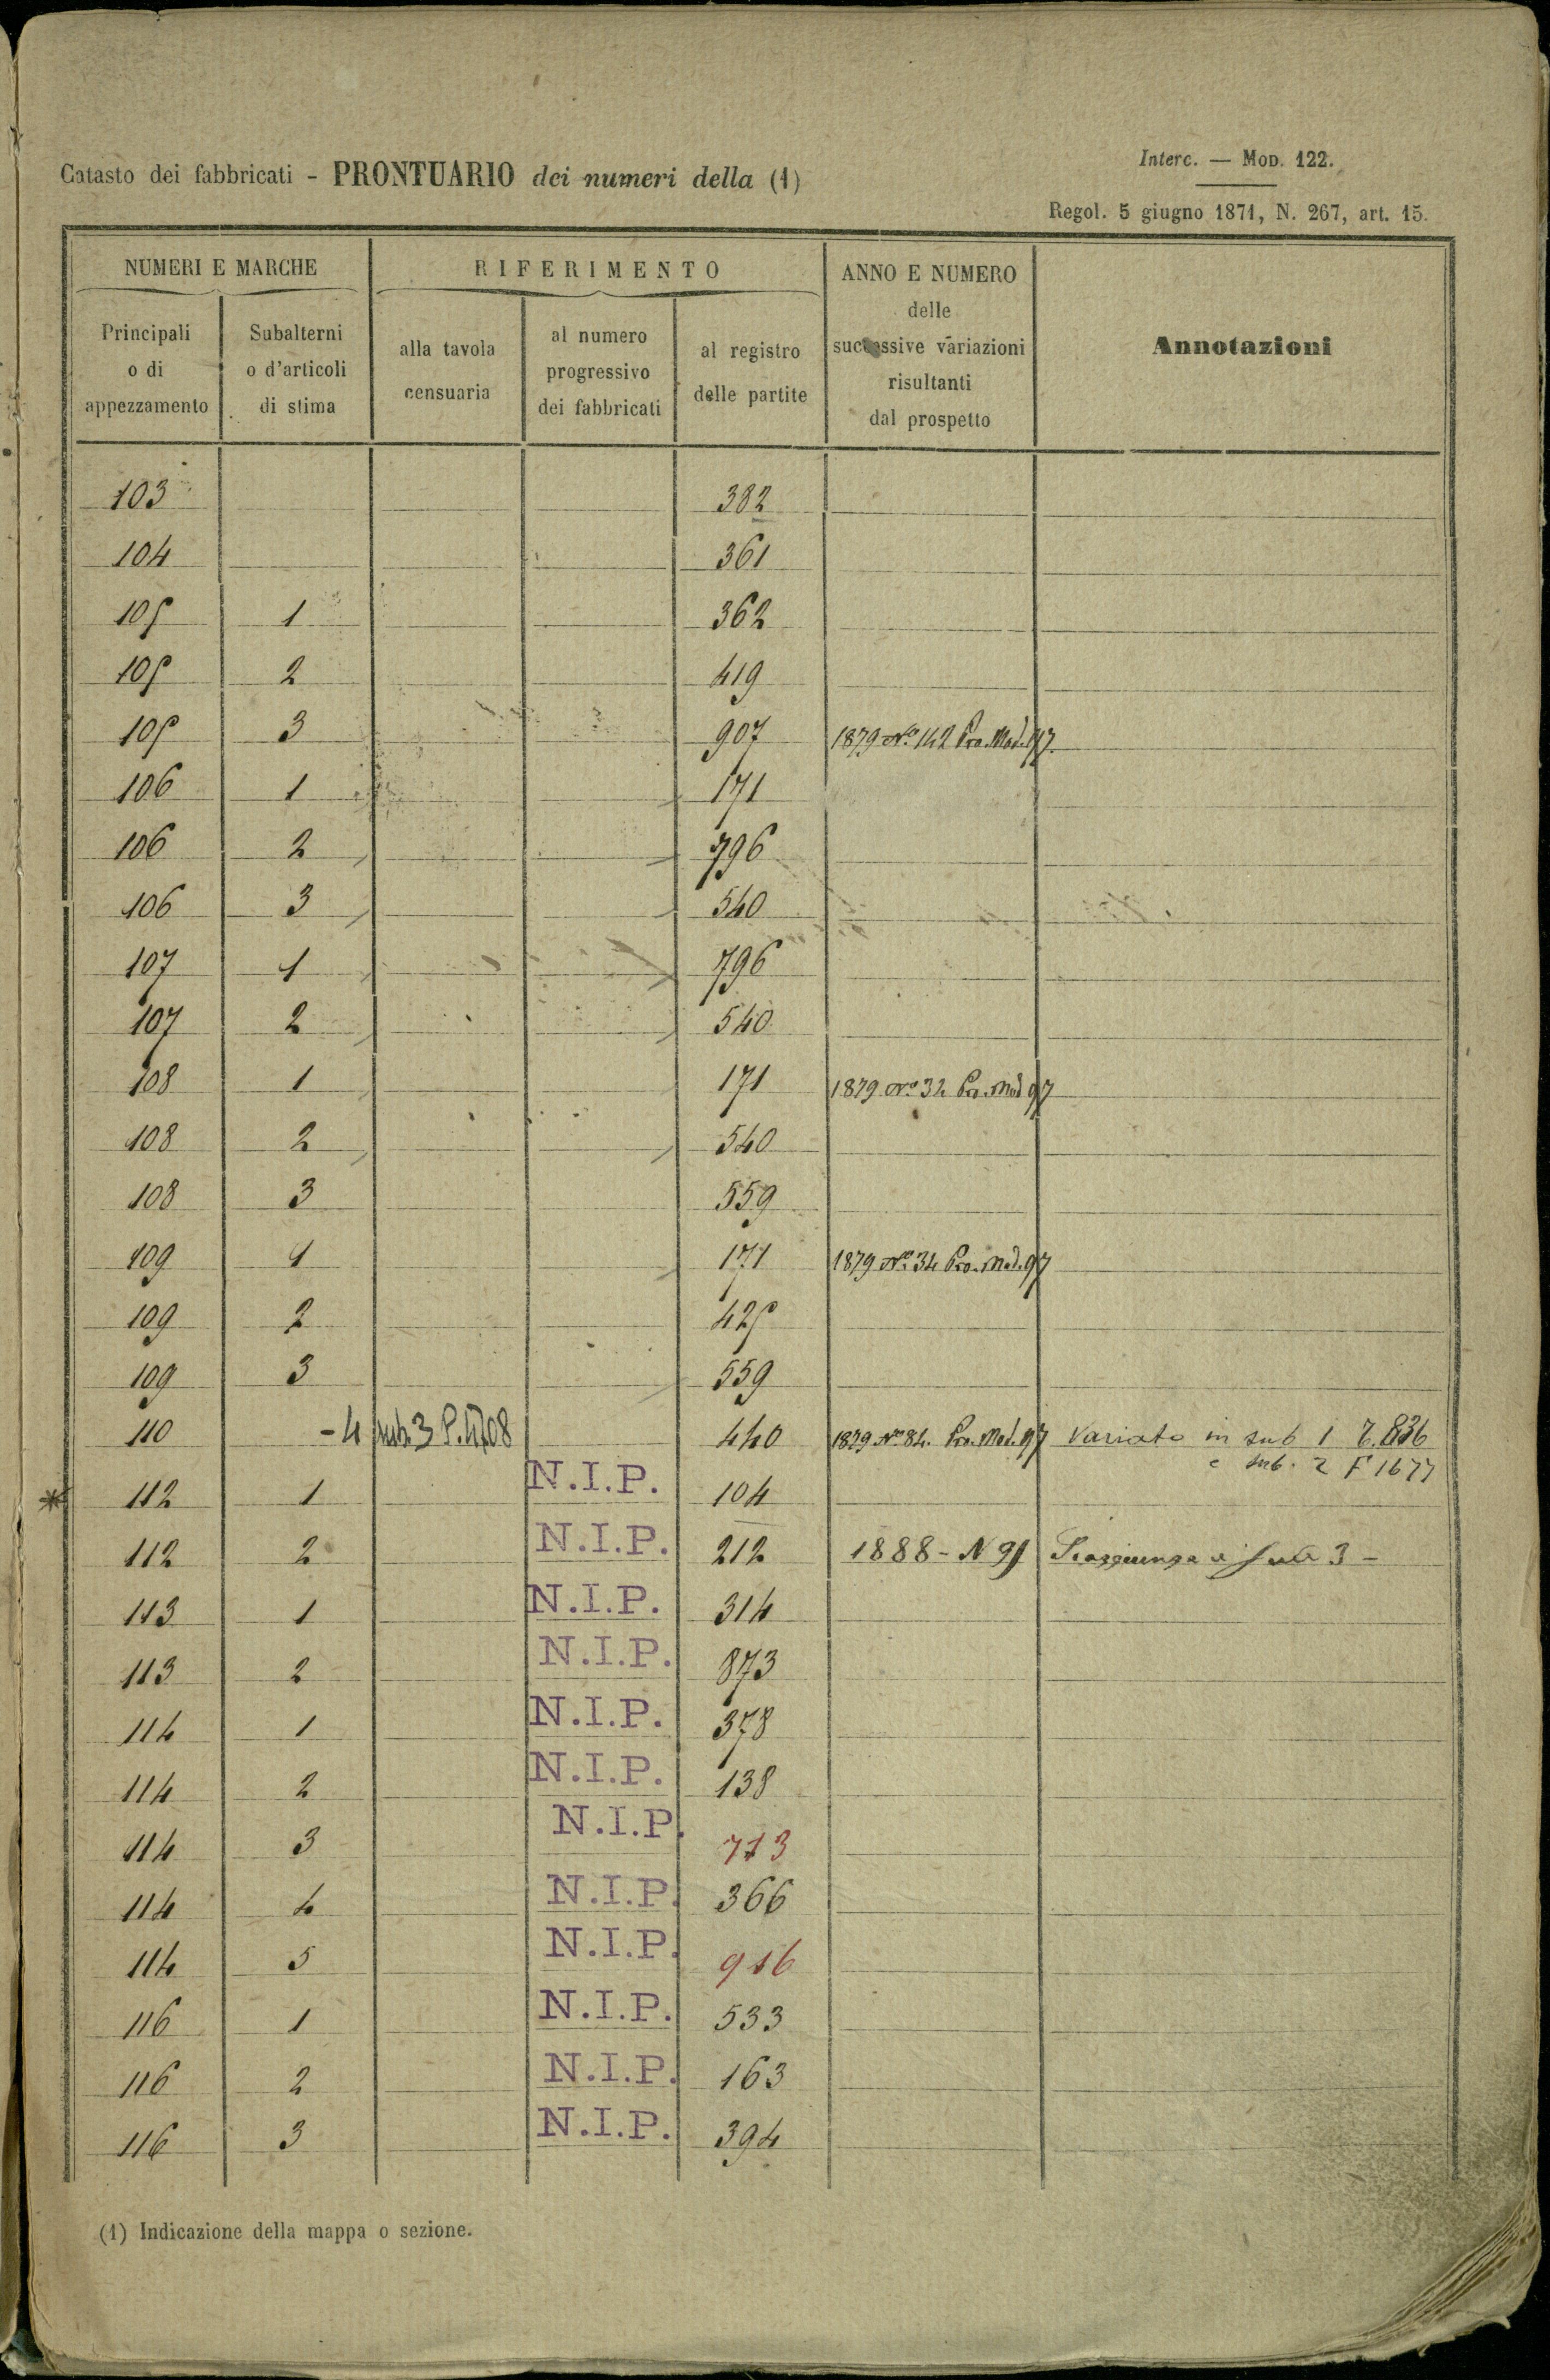 Catasto dei fabbricati - PRONTUARIO dei numeri della (1)
Interc. — Mod. 122.
Regol. 5 giugno 1871, N. 267, art. 15.
NUMERI E MARCHE
RIFERIMENTO
ANNO E NUMERO
delle
successive variazioni
risultanti
dal prospetto
Annotazioni
Principali
o di
appezzamento
Subalterni
o d'articoli
di stima
alla tavola
censuaria
al numero
progressivo
dei fabbricati
al registro
delle partite
103 382
104 361
105 1 362
105 2 419
105 3 907 1879 Nº 142 Pro. Mod. 97.
106 1 171
106 2 796
106 3 540
107 1 796
107 2 540
108 1 171 1879 Nº 32 Pro. Mod 97
108 2 540
108 3 559
109 1 171 1879 Nº 34 Pro. Mod. 97
109 2 425
109 3 559
110 -4 sub. 3 440 1879 Nº 84. Pro. Mod. 97 Variato in sub 1 836
e sub. 2 F 1677
112 1 N.I.P. 104
112 2 N.I.P. 212 1888 - N 91 3 -
113 1 N.I.P. 314
113 2 N.I.P. 873
114 1 N.I.P. 378
114 2 N.I.P. 138
114 3 N.I.P. 713
114 4 N.I.P. 366
114 5 N.I.P. 916
116 1 N.I.P. 533
116 2 N.I.P. 163
116 3 N.I.P. 394
(1) Indicazione della mappa o sezione.